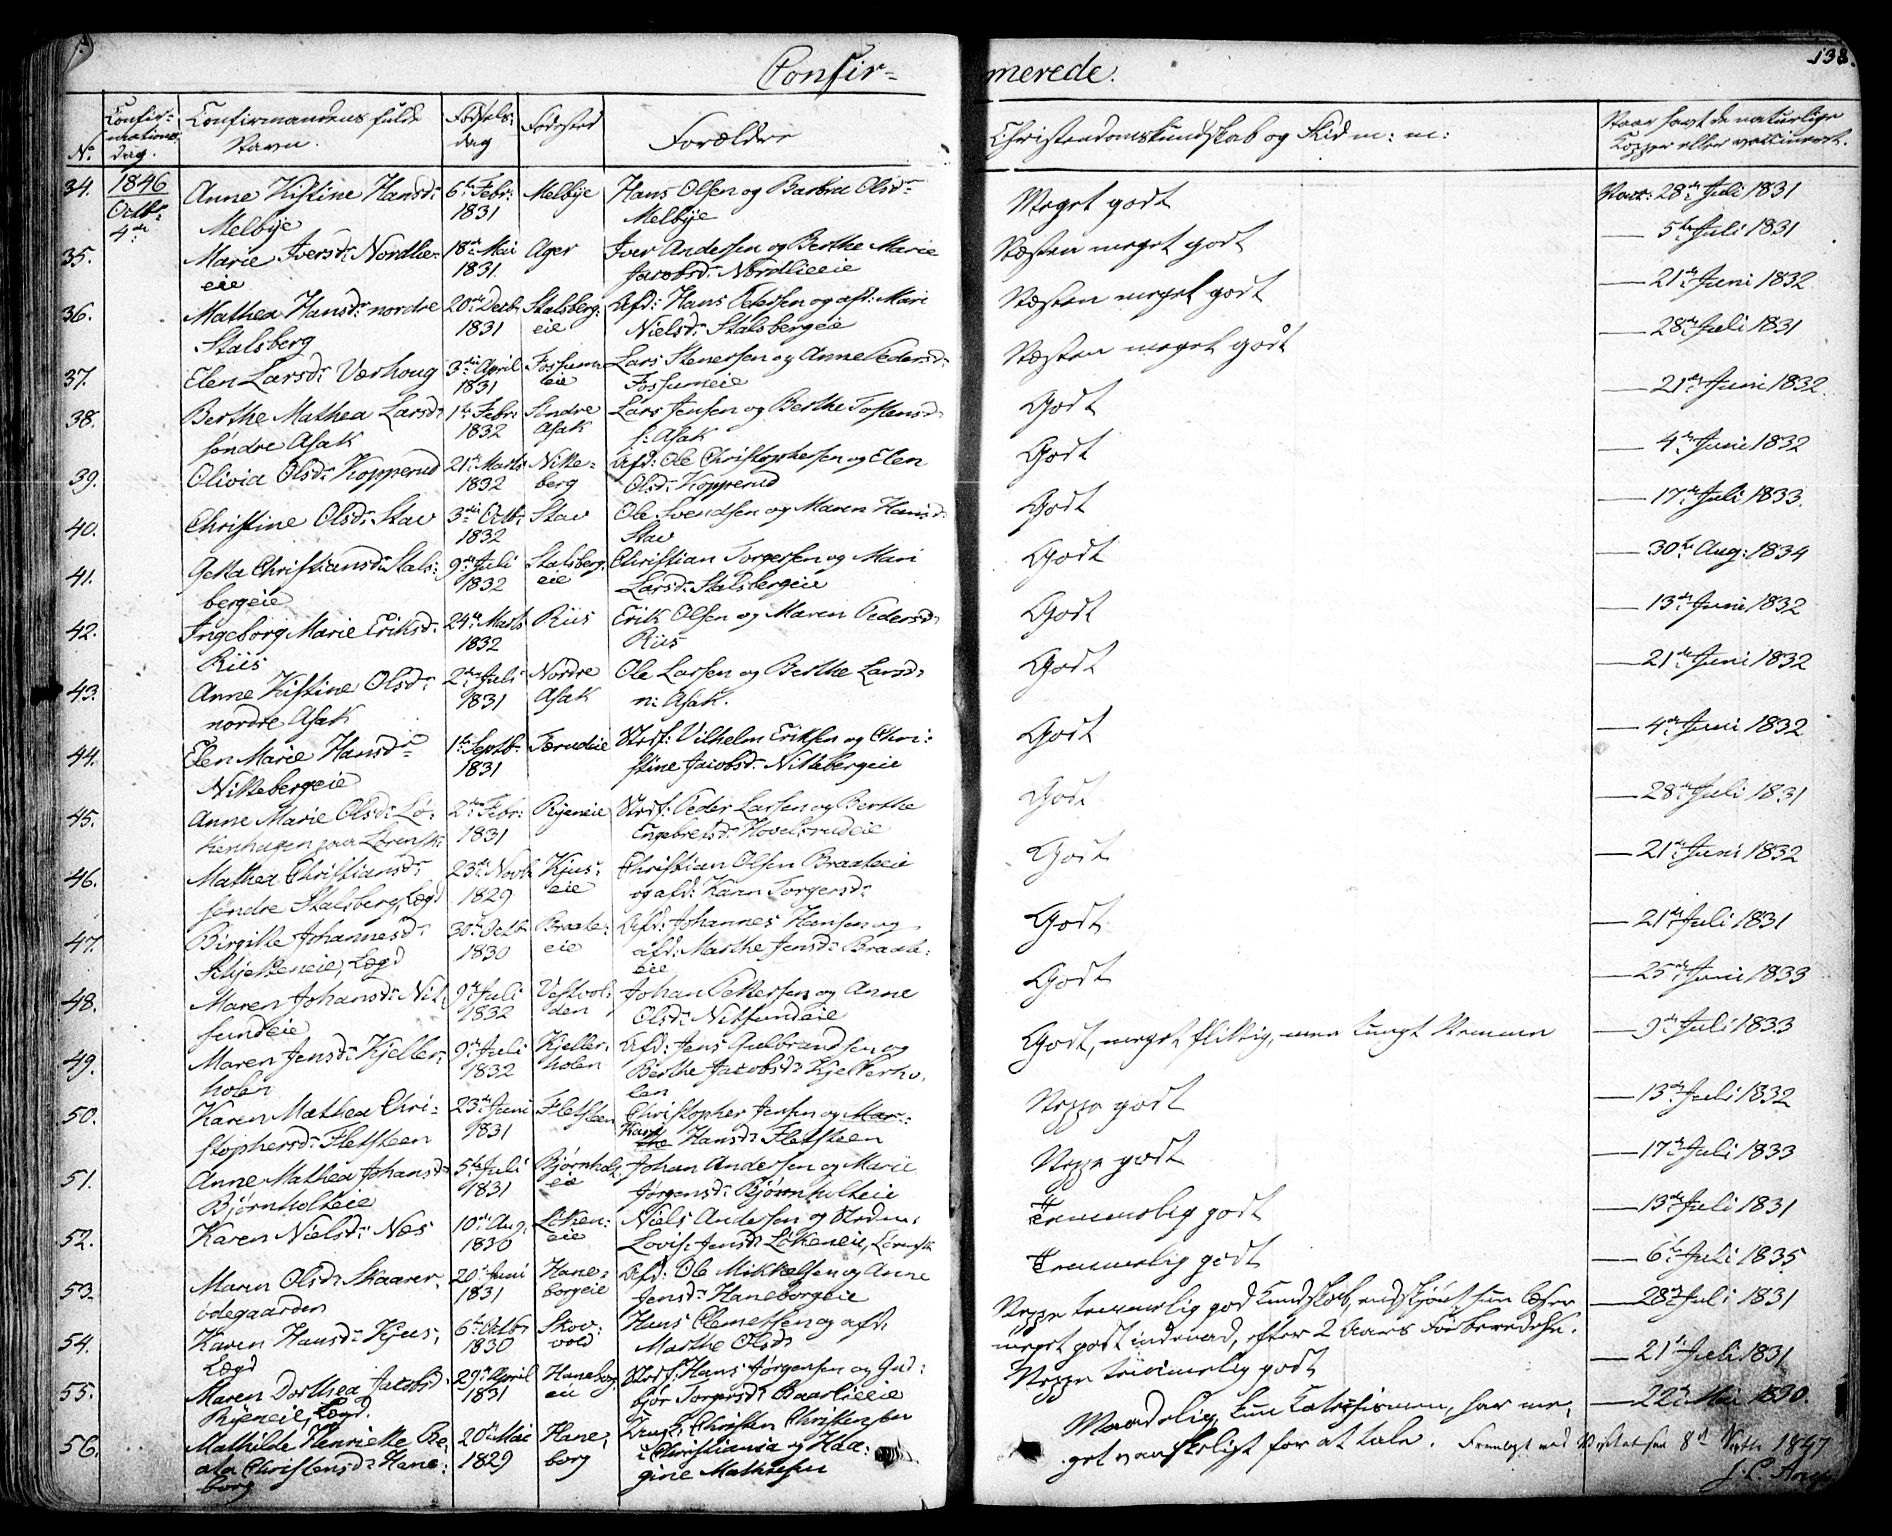 Confir=
merede.
138.
No.
Confir=
mations
dag.
Confirmandens fulde
Navn.
Fødsels:
dag
Fødested
Forældre
Christendomskundskab og Flid m: m:
Naar havt de naturlige
Kopper eller vaccineret.
1846
Octb:
4de
34.
Anne Kistine Hansd:
Melbye
6te Febr:
1831
Melbye
Hans Olsen og Barbra Olsd:
Melbye
Meget godt
Vacc: 28de Juli 1831
35.
Marie Iversd: Nordlie=
eie
18de Mai
1831
Ager
Iver Andersen og Berthe Marie
Jacobsd: Nordlieeie
Næsten meget godt
— 5te Juli 1831
36.
Mathea Hansd: nordre
Stalsberg
20de Decb:
1831
Stalsberg:
eie
Afd: Hans Pedersen og afd: Mari
Nielsd: Stalsbergeie
Næsten meget godt
— 21de Juni 1832
37.
Elen Larsd: Værhoug
3die April
1831
Fossum
eie
Lars Stenersen og Anne Pedersd:
Fossumeie
Næsten meget godt
— 28de Juli 1831
38.
Berthe Mathea Larsd:
søndre Asak
1te Febr:
1832
Søndre
Asak
Lars Jensen og Berthe Tostensd:
s: Asak
Godt
— 21de Juni 1832.
39.
Olivia Olsd: Kopperud
21de Marts
1832
Nitte=
berg
Afd: Ole Christophersen og Elen
Olsd: Kopperud
Godt
— 4de Juni 1832
40.
Christine Olsd: Stav
3die Octb:
1832
Stav
Ole Svendsen og Maren Hansd:
Stav
Godt
— 17de Juli 1833.
41.
Christiansd: Stals:
bergeie
9de Juli
1832
Stalsberg:
eie
Christian Torgersen og Mari
Larsd: Stalsbergeie
Godt
— 30te Aug: 1834
42.
Ingeborg Marie Eriksd:
Riis
24de Marts
1832
Riis
Erik Olsen og Maren Pedersd:
Riis
Godt
— 13de Juni 1832
43.
Anne Kistine Olsd:
nordre Asak
2den Juli
1831
Nordre
Asak
Ole Larsen og Berthe Larsd:
n: Asak.
Godt
— 21de Juni 1832
44.
Elen Marie Hansd:
Nittebergeie
1te Septb:
1831
Tærudeie
Vilhelm Eriksen og Chri:
stine Jacobsd: Nittebergeie
Godt
— 4de Juni 1832
45.
Anne Marie Olsd: Lø:
kenhagen paa Lørensk:
2den Febr:
1831
Ryeneie
Peder Larsen og Berthe
Engebretsd: Hovelsrudeie
Godt
— 28de Juli 1831
46.
Mathea Christiansd:
søndre Stalsberg, Lægd
23de Novb:
1829
Kjus=
eie
Christian Olsen Braateeie
og afd: Karen Torgersd:
Godt
— 21de Juni 1832
47.
Birgitte Johannesd:
Skjetteneie, Lægd
30te Octb:
1830
Braate=
eie
Afd: Johannes Hansen og
afd: Marthe Jensd: Braate:
eie
Godt
— 21de Juli 1831
48.
Maren Johansd: Nit=
sundeie
9de Juli
1832
Vestvol:
den
Johan Pettersen og Anne
Olsd: Nitsundeie
Godt
— 25de Juni 1833
49.
Maren Jensd: Kjeller=
holen
9de Juli
1832
Kjeller:
holen
Afd: Jens Gulbrandsen og
Berthe Jacobsd: Kjellerho:
len
Godt, meget flittig, men tungt Nemme
— 9de Juli 1833
50.
Karen Mathea Chri=
stophersd: Fletsteen
23de Juni
1831
Fletsteen
Christopher Jensen og Mar=
Kari
the Hansd: Fletsteen
Neppe godt
— 13de Juli 1832
51.
Anne Mathea Johansd:
Bjørnholteie
5te Juli
1831
Bjørnholt
eie
Johan Andersen og Marie
Jørgensd: Bjørnholteie
Neppe godt
— 17de Juli 1833
52.
Karen Nielsd: Næs
10de Aug:
1830
Løken=
eie
Niels Andersen og
Lovis: Jensd: Løkeneie, Lørensk:
Temmelig godt
— 13de Juli 1831
53.
Maren Olsd: Skaarer
ødegaarden
20de Juni
1831
Hane=
borgeie
Afd: Ole Mikkelsen og Anne
Jensd: Haneborgeie
Temmelig godt
— 6te Juli 1835
54.
Karen Hansd: Kjus,
Lægd
6te Octb:
1830
Skov:
vold
Hans Clemetsen og afd:
Marthe Olsd:
Neppe temmelig god Kundskab, endskjønt hun læser
meget godt indenad, efter 2 Aars Forberedelse.
— 28de Juli 1831
55.
Maren Dorthea Jacobsd:
Ryeneie, Lægd.
29de April
1831
Haneborg
eie
Hans Jørgensen og Gud:
bjør Torgersd: Baarlieeie
Neppe temmelig godt
— 21de Juli 1831
56.
Mathilde Henriette Be:
ata Christensd: Hane:
borg
20de Mai
1829
Hane:
borg
Christen Christensen
i Christiania og
gine Mathisen
Maadelig, kun Catechismen, har me:
get vanskeligt for at tale.
— 22de Mai 1830.
Fremlagt ved Visitatsen 8de 1847